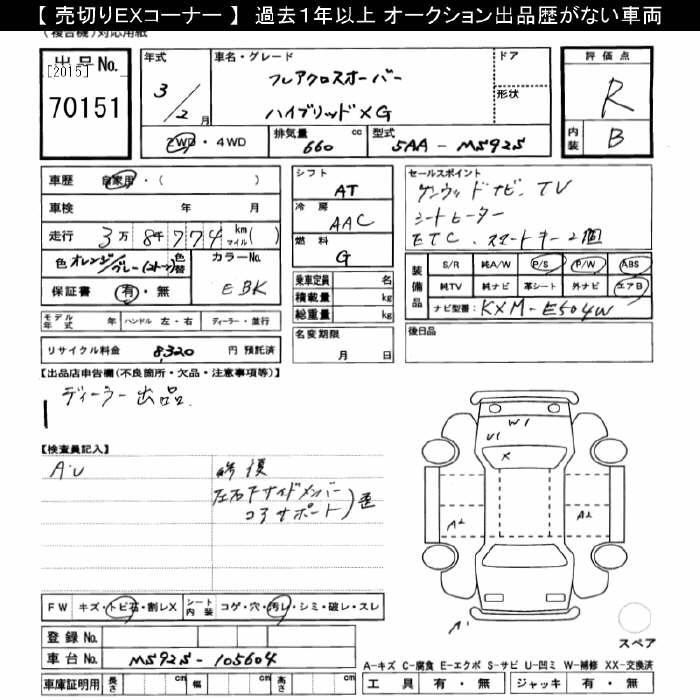 【 売切りEXコーナー 】 過去１年以上 オークション出品歴がない車両
(複合機)対応用紙
出品No.
[2015]
70151
年式 3/2月
車名・グレード
フレアクロスオーバー
ハイブリッドXG
ドア
形状
評価点
R
内装 B
2WD・4WD
排気量 660 cc
型式 5AA - MS92S
車歴 自家用・( )
車検 年 月
走行 3万 8千 774 km マイル( )
色 オレンジ/グレー(2トーン) 色替
カラーNo. EBK
保証書 有・無
シフト AT
冷房 AAC
燃料 G
乗車定員 名
積載量 kg
総重量 kg
名変期限
月 日
セールスポイント
ケンウッドナビ、TV
シートヒーター
ETC、スマートキー2個
装備品
S/R 純A/W P/S P/W ABS
純TV 純ナビ 革シート 外ナビ エアB
ナビ型番: KXM-E504W
後日品
モデル年式 年 ハンドル 左・右 ディーラー・並行
リサイクル料金 8,320 円 預託済
【出品店申告欄(不良箇所・欠品・注意事項等)】
ディーラー出品
【検査員記入】
A・U
修復
左右Fサイドメンバー
コアサポート)歪
W1
U1
X
A2
A2
A1
スペア
FW キズ・トビ石・割レX
シート内装 コゲ・穴・汚レ・シミ・破レ・スレ
登録No.
車台No. MS92S-105604
車庫証明用 長さ cm 幅 cm 高さ cm
A-キズ C-腐食 E-エクボ S-サビ U-凹ミ W-補修 XX-交換済
工具 有・無 ジャッキ 有・無